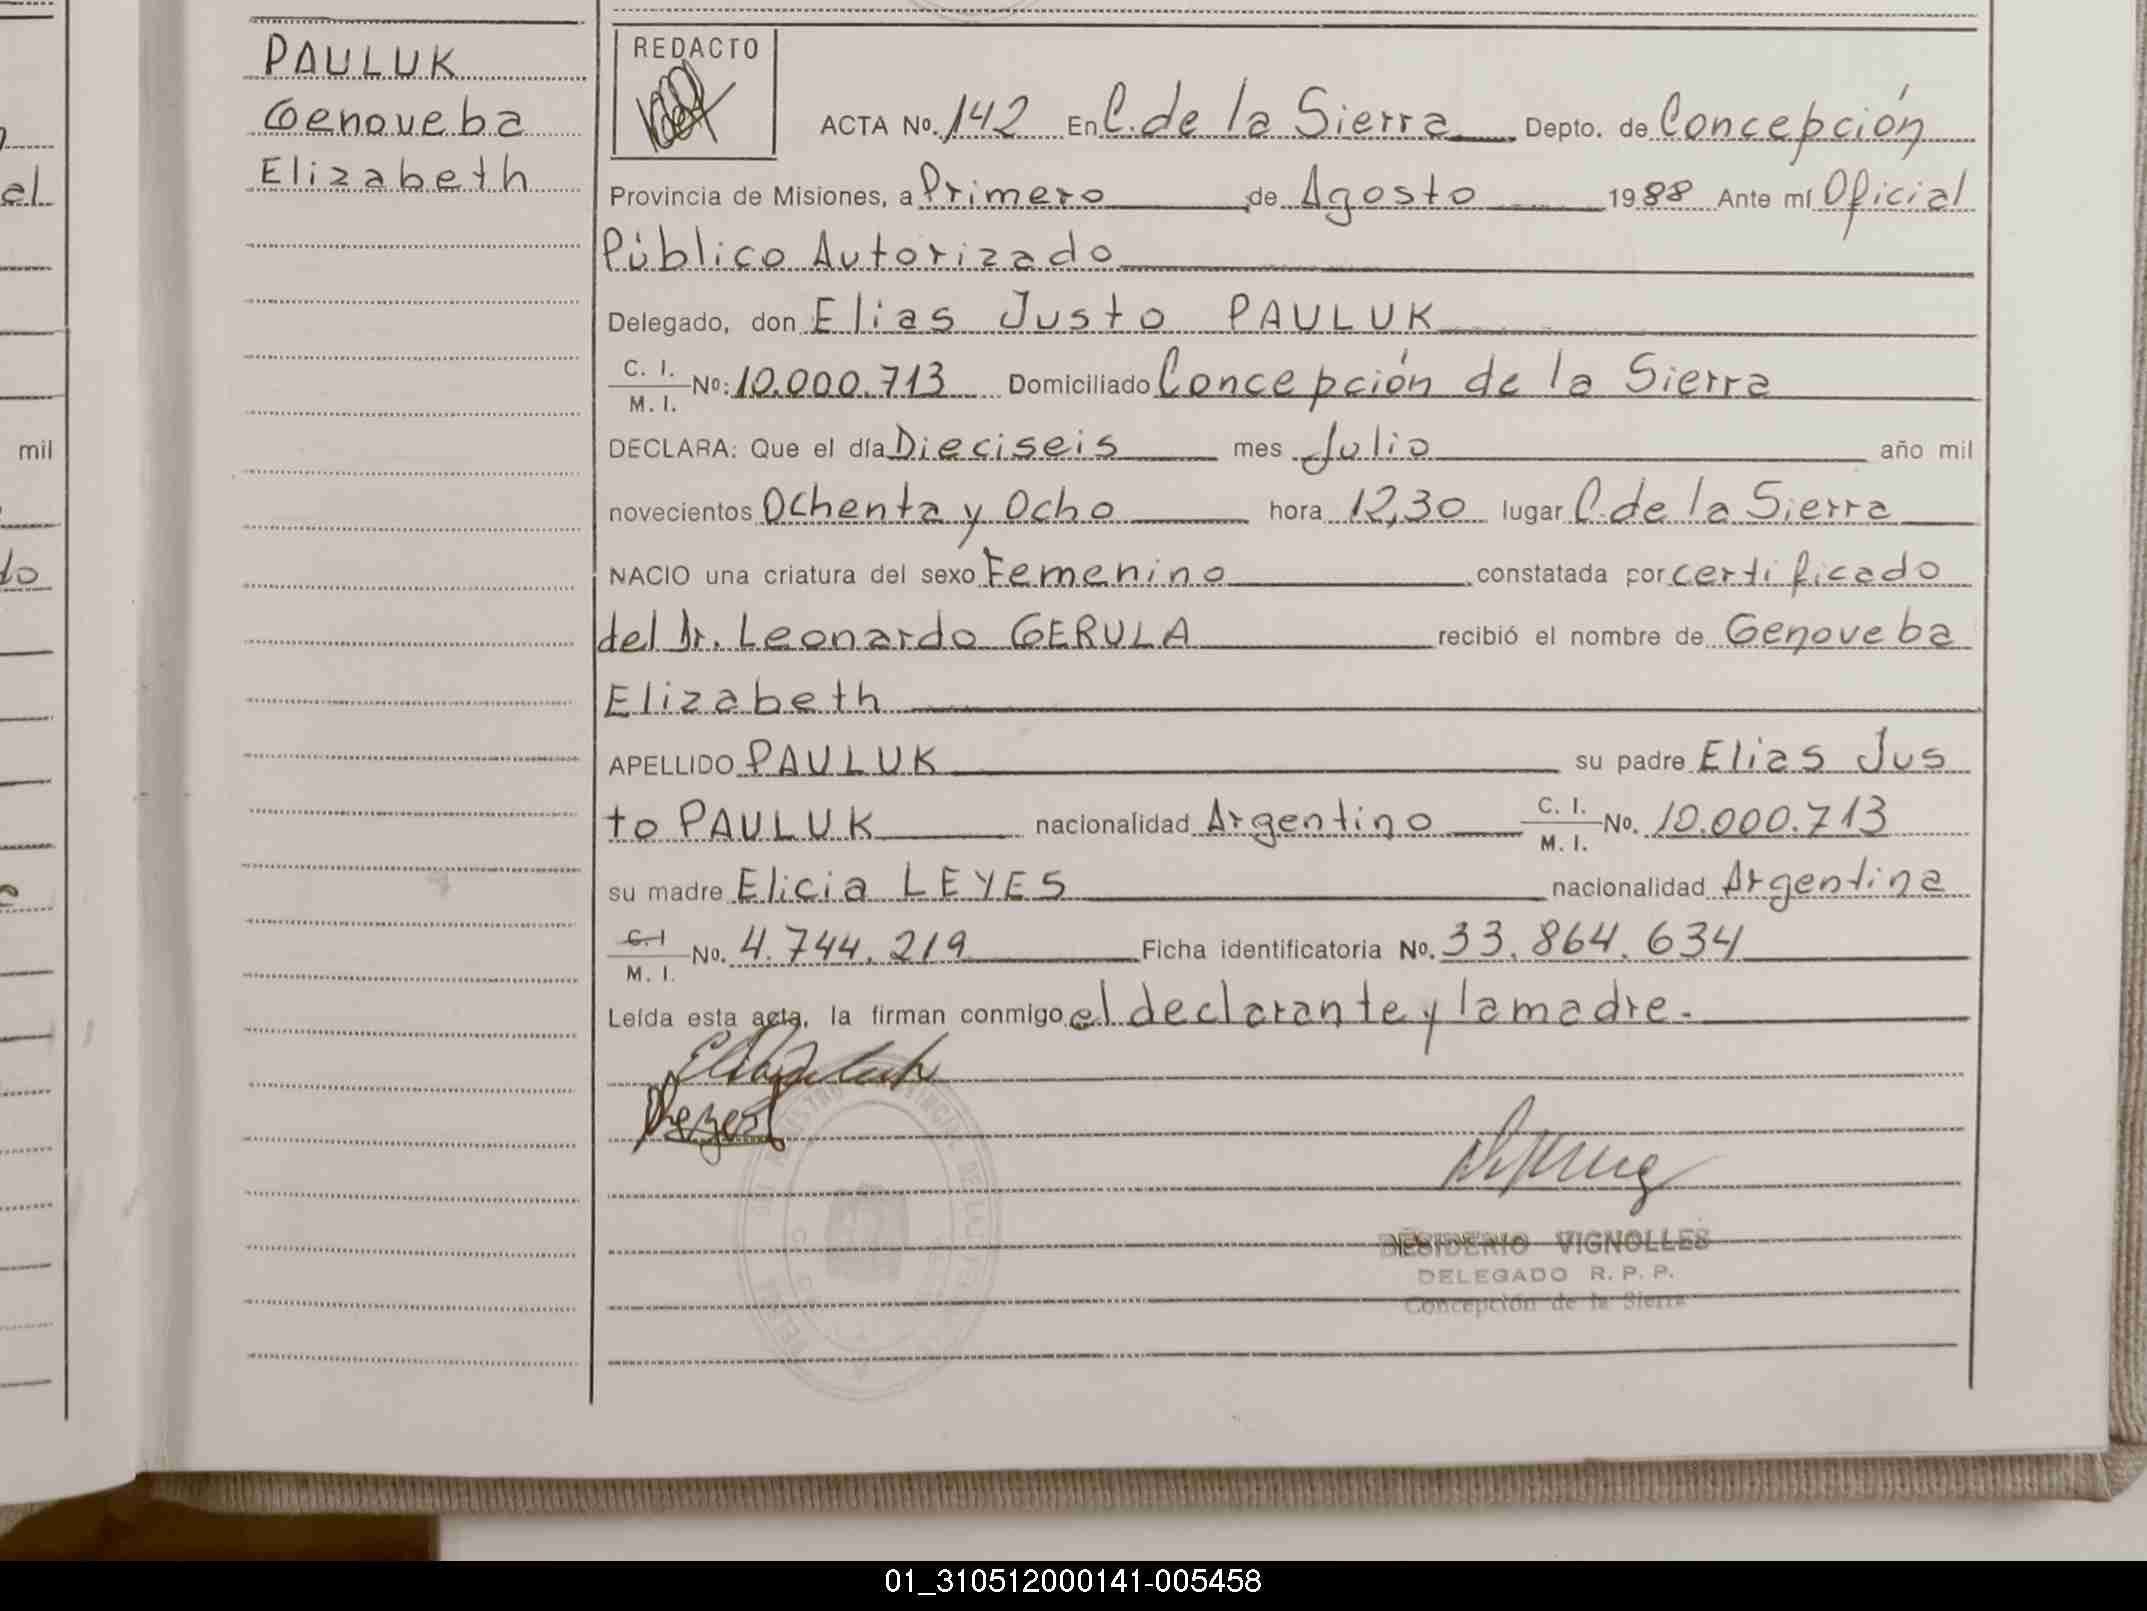 PAULUK
Genoveba
Elizabeth
el
mil
do
REDACTO
ACTA No. 142 En C. de la Sierra Depto. de Concepción
Provincia de Misiones, a Primero de Agosto 1988 Ante mí Oficial
Público Autorizado
Delegado, don Elias Justo PAULUK
C. I.
M. I. No: 10.000.713 Domiciliado Concepción de la Sierra
DECLARA: Que el día Dieciseis mes Julio año mil
novecientos Ochenta y Ocho hora 12,30 lugar C. de la Sierra
NACIO una criatura del sexo Femenino constatada por certificado
del Dr. Leonardo GERULA recibió el nombre de Genoveba
Elizabeth
APELLIDO PAULUK su padre Elias Jus
to PAULUK nacionalidad Argentino C. I. M. I. No. 10.000.713
su madre Elicia LEYES nacionalidad Argentina
C. I
M. I. No. 4.744.219 Ficha identificatoria No. 33.864.634
Leída esta acta, la firman conmigo el declarante y la madre.-
DESIDERIO VIGNOLLES
DELEGADO R. P. P.
Concepción de la Sierra
01_310512000141-005458